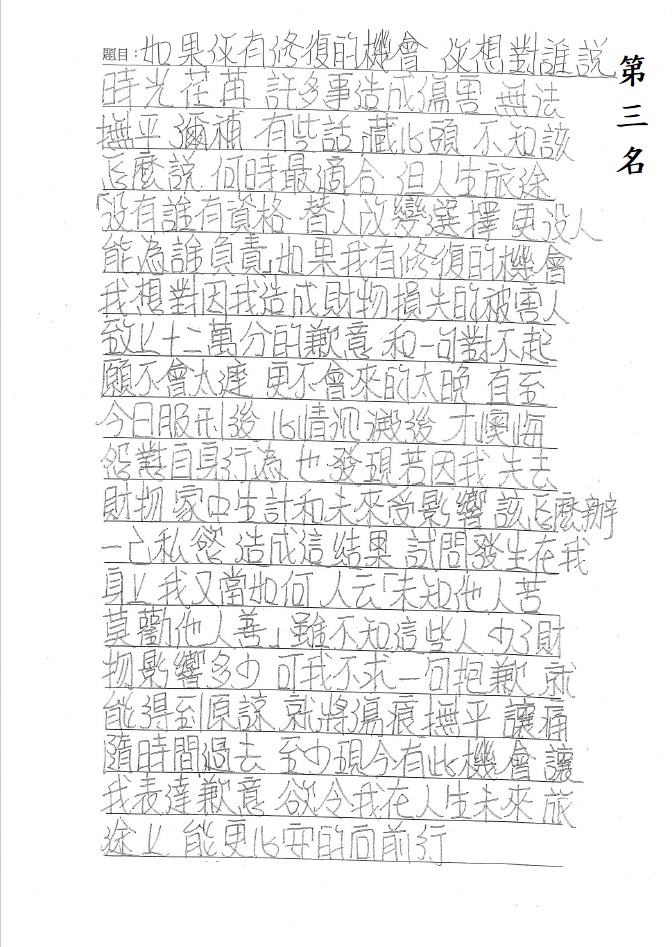 題目：如果你有修復的機會 你想對誰說
第三名
時光荏苒 許多事造成傷害 無法
撫平彌補 有些話藏心頭 不知該
怎麼說 何時最適合 但人生旅途
「沒有誰有資格 替人改變選擇 更沒人
能為誰負責」如果我有修復的機會
我想對因我造成財物損失的被害人
致上十二萬分的歉意 和一句對不起
願不會太遲 更不會來的太晚 直至
今日服刑後 心情沉澱後 才懊悔
怨懟自身行為 也發現若因我失去
財物 家中生計和未來受影響該怎麼辦
一己私慾 造成這結果 試問發生在我
身上 我又當如何 人云「未知他人苦
莫勸他人善」雖不知這些人 少了財
物影響多少 可我不求一句抱歉 就
能得到原諒 就將傷痕撫平 讓痛
隨時間過去 至少現今有此機會 讓
我表達歉意 欲令我在人生未來旅
途上 能更心安的向前行